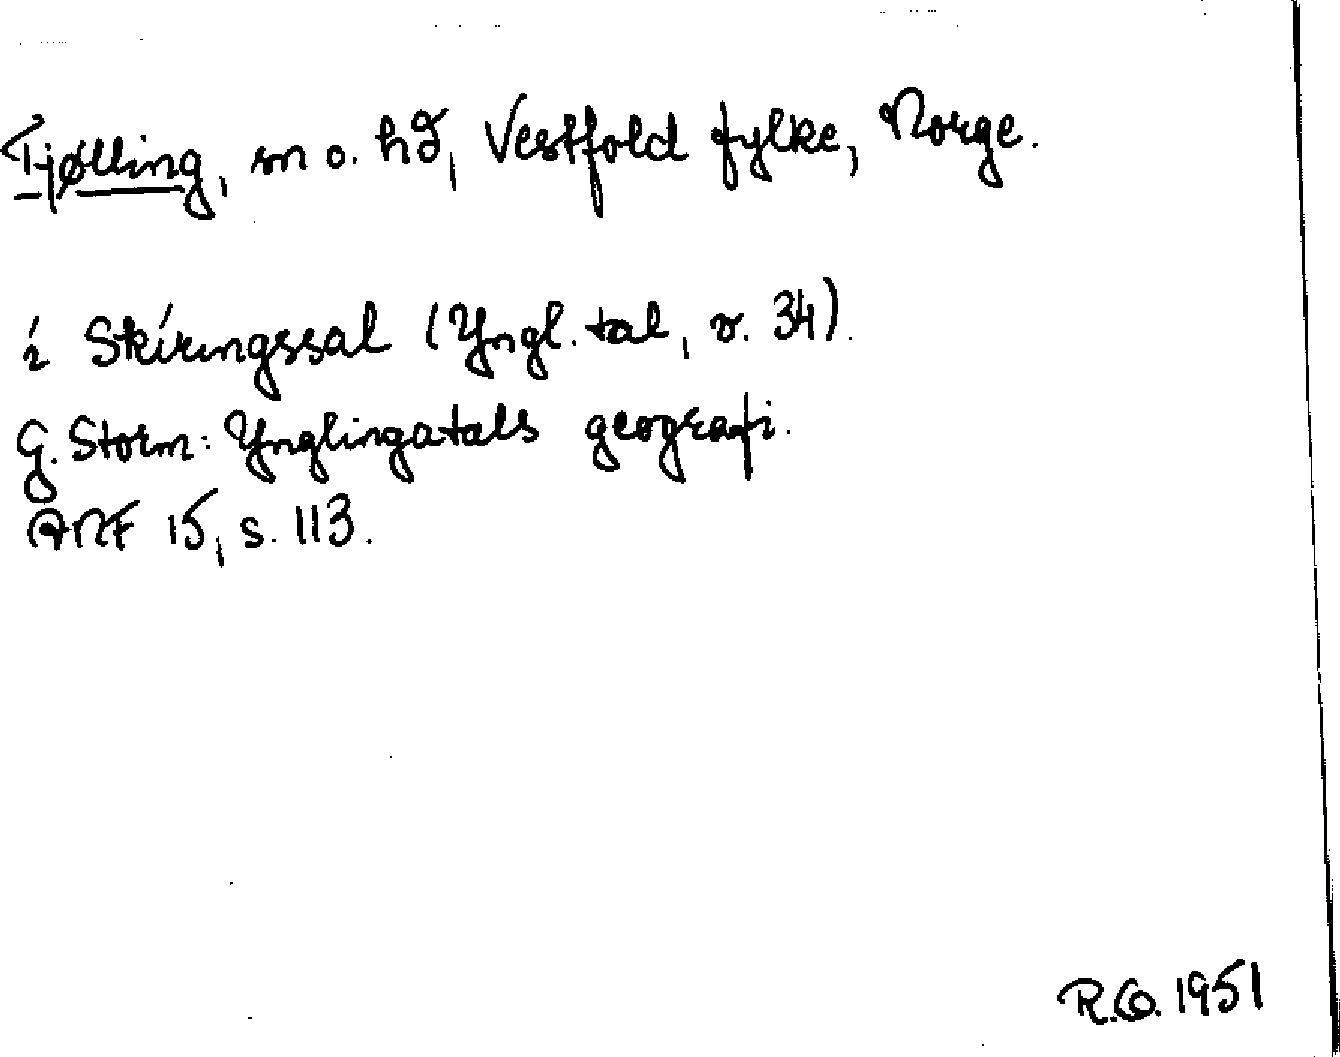 Tjølling, sn o. hd, Vestfold fylke, Norge.
í Skíringssal (Yngl.tal, v. 34).
G. Storm: Ynglingatals geografi.
ANF 15, s. 113.
R.O. 1951